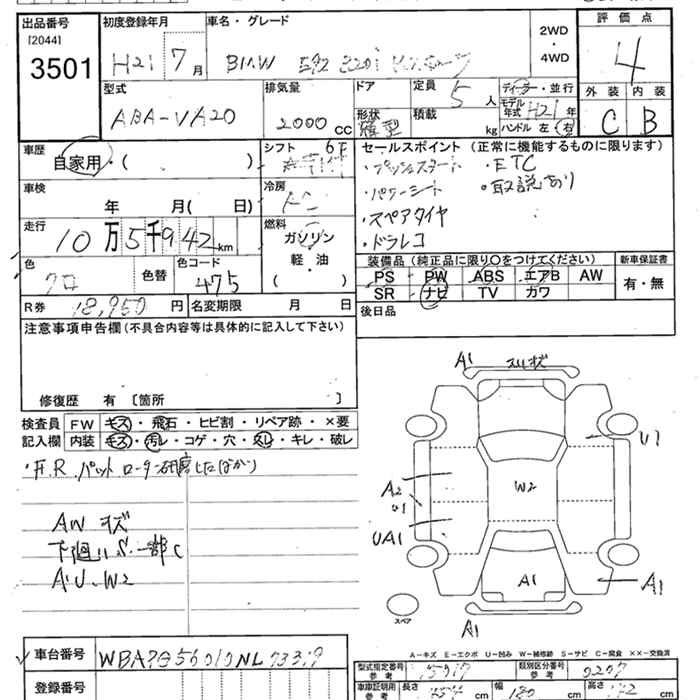 出品番号 初度登録年月 車名・グレード 評価点
[2044]
3501 H21 7月 BMW 2WD・4WD 4
型式 排気量 ドア 定員 5人 ディーラー・並行 外装 内装
ABA-VA20 2000cc 形状 積載 kg モデル年式 H21年 C B
ハンドル 左 右
車歴 シフト 6F セールスポイント (正常に機能するものに限ります)
自家用・( ) ・プッシュスタート ・ETC
車検 冷房 ・パワーシート ・取説あり
年 月( 日) ・スペアタイヤ
走行 燃料 ・ドラレコ
10万5千942km ガソリン
軽・油
( )
色 色替 カラーコード 装備品 (純正品に限り○をつけてください) 新車保証書
クロ 475 PS PW ABS エアB AW 有・無
SR ナビ TV カワ
R券 18,950円 名変期限 月 日 後日品
注意事項申告欄(不具合内容等は具体的に記入して下さい)
修復歴 有 [箇所 ]
検査員 FW キズ・飛石・ヒビ割・リペア跡・×要
記入欄 内装 キズ・汚レ・コゲ・穴・スレ・キレ・破レ
・F.R.パット ローター研磨したばかり
AW キズ
下廻りS.一部C
A.U.W2
A1 スリキズ
U1
A2
U1
W2
UA1
A1
A1
A1
スペア
A-キズ E-エクボ U-凹み W-補修跡 S-サビ C-腐食 XX-交換済
車台番号
型式指定番号 参考 類別区分番号 参考
登録番号 車車証明用 参考 長さ cm 幅 180 cm 高さ cm